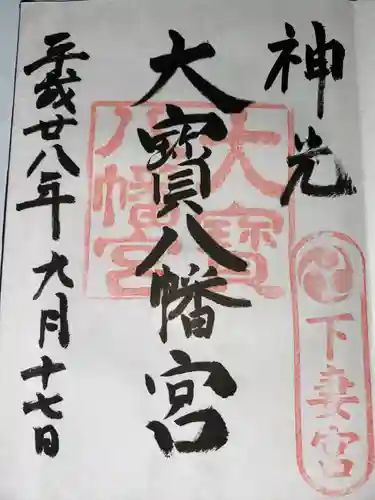 神光
大寳八幡宮
平成廿八年九月十七日
大寳
八幡宮
下妻宮